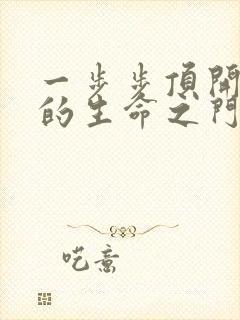 一步步頂開
的生命之門
呓意